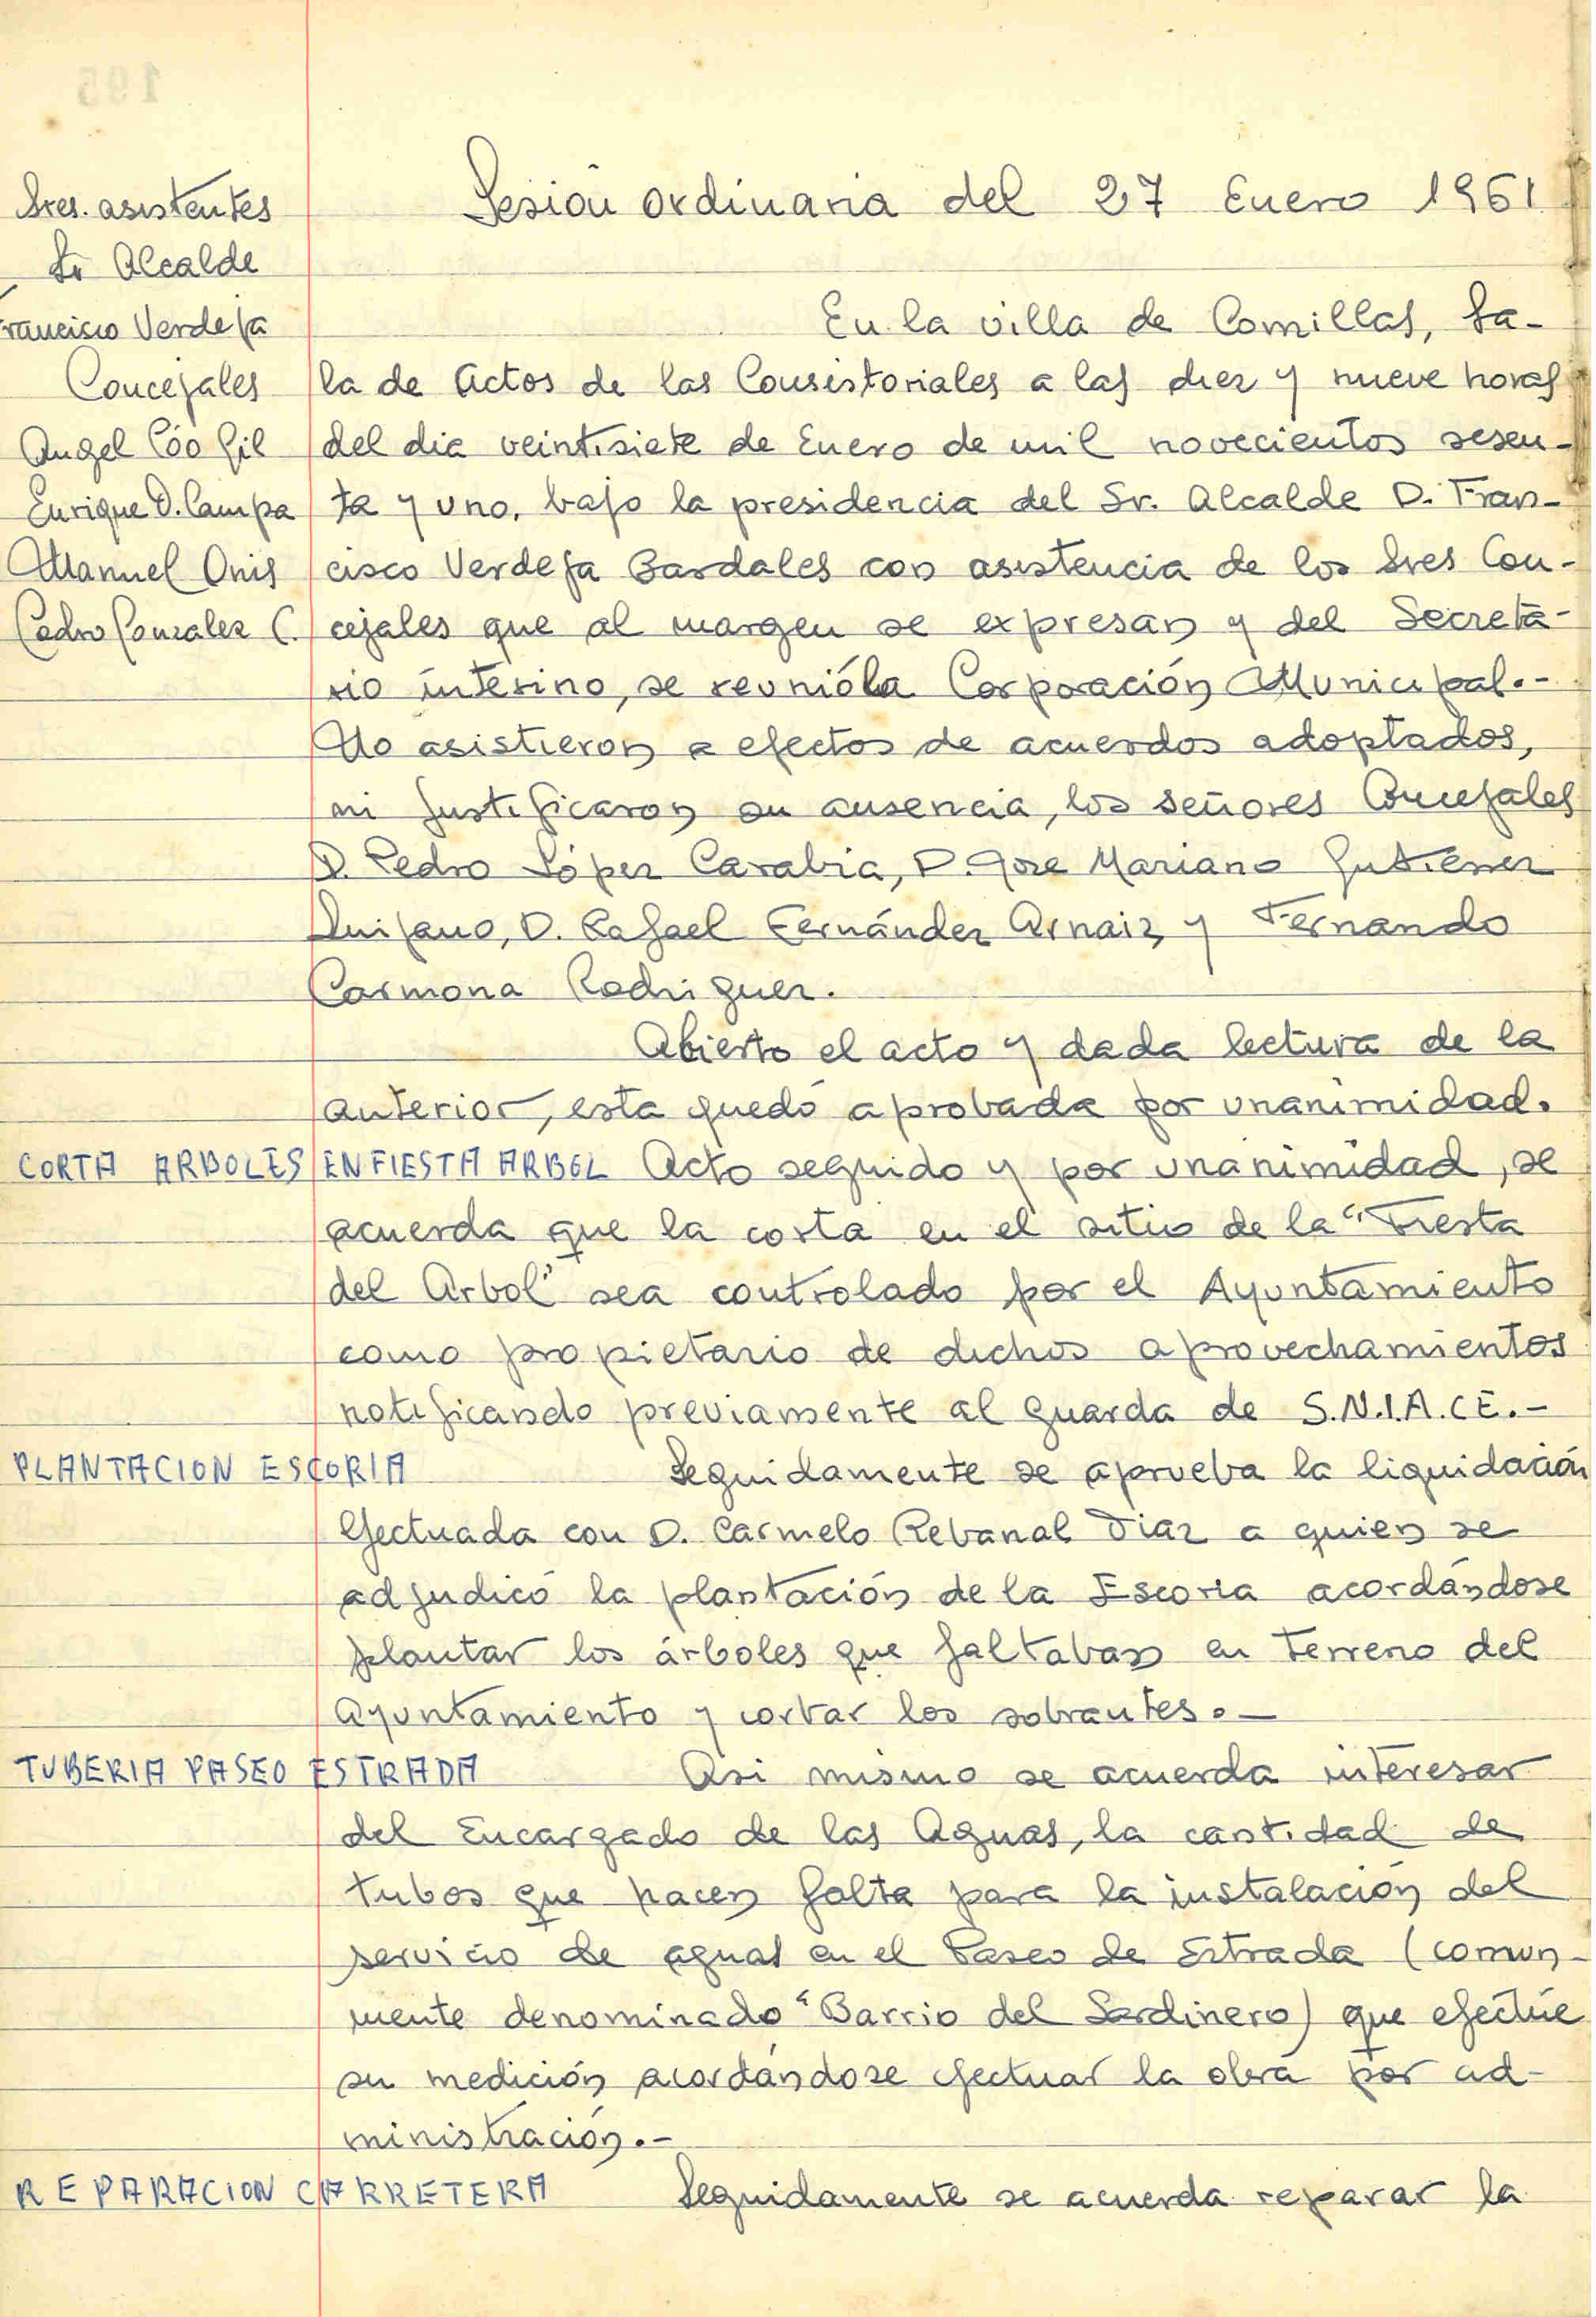 195
Sesión ordinaria del 27 Enero 1961
Sres. asistentes
Sr Alcalde
Francisco Verdeja
Concejales
Angel Cóo Gil
Enrique D. Campa
Manuel Onis
Pedro Gonzalez C.
En la villa de Comillas, Sa-
la de Actos de las Consistoriales a las diez y nueve horas
del dia veintisiete de Enero de mil novecientos sesen-
ta y uno, bajo la presidencia del Sr. Alcalde D. Fran-
cisco Verdeja Bardales con asistencia de los Sres Con-
cejales que al margen se expresan y del Secreta-
rio interino, se reunió la Corporación Municipal.-
No asistieron a efectos de acuerdos adoptados,
ni justificaron su ausencia, los señores Concejales
D. Pedro López Carabia, D. Jose Mariano Gutierrez
Quijano, D. Rafael Fernández Arnaiz y Fernando
Carmona Rodriguez.
Abierto el acto y dada lectura de la
anterior, esta quedó aprobada por unanimidad.
CORTA ARBOLES EN FIESTA ARBOL Acto seguido y por unanimidad, se
acuerda que la corta en el sitio de la "Fiesta
del Arbol" sea controlado por el Ayuntamiento
como propietario de dichos aprovechamientos
notificando previamente al guarda de S.N.I.A.CE.-
PLANTACION ESCORIA Seguidamente se aprueba la liquidación
efectuada con D. Carmelo Rebanal Diaz a quien se
adjudicó la plantación de la Escoria acordándose
plantar los árboles que faltaban en terreno del
Ayuntamiento y cortar los sobrantes.-
TUBERIA PASEO ESTRADA Asi mismo se acuerda interesar
del Encargado de las Aguas, la cantidad de
tubos que hacen falta para la instalación del
servicio de aguas en el Paseo de Estrada (comun-
mente denominado "Barrio del Sardinero) que efectúe
su medición acordándose efectuar la obra por ad-
ministración.-
REPARACION CARRETERA Seguidamente se acuerda reparar la